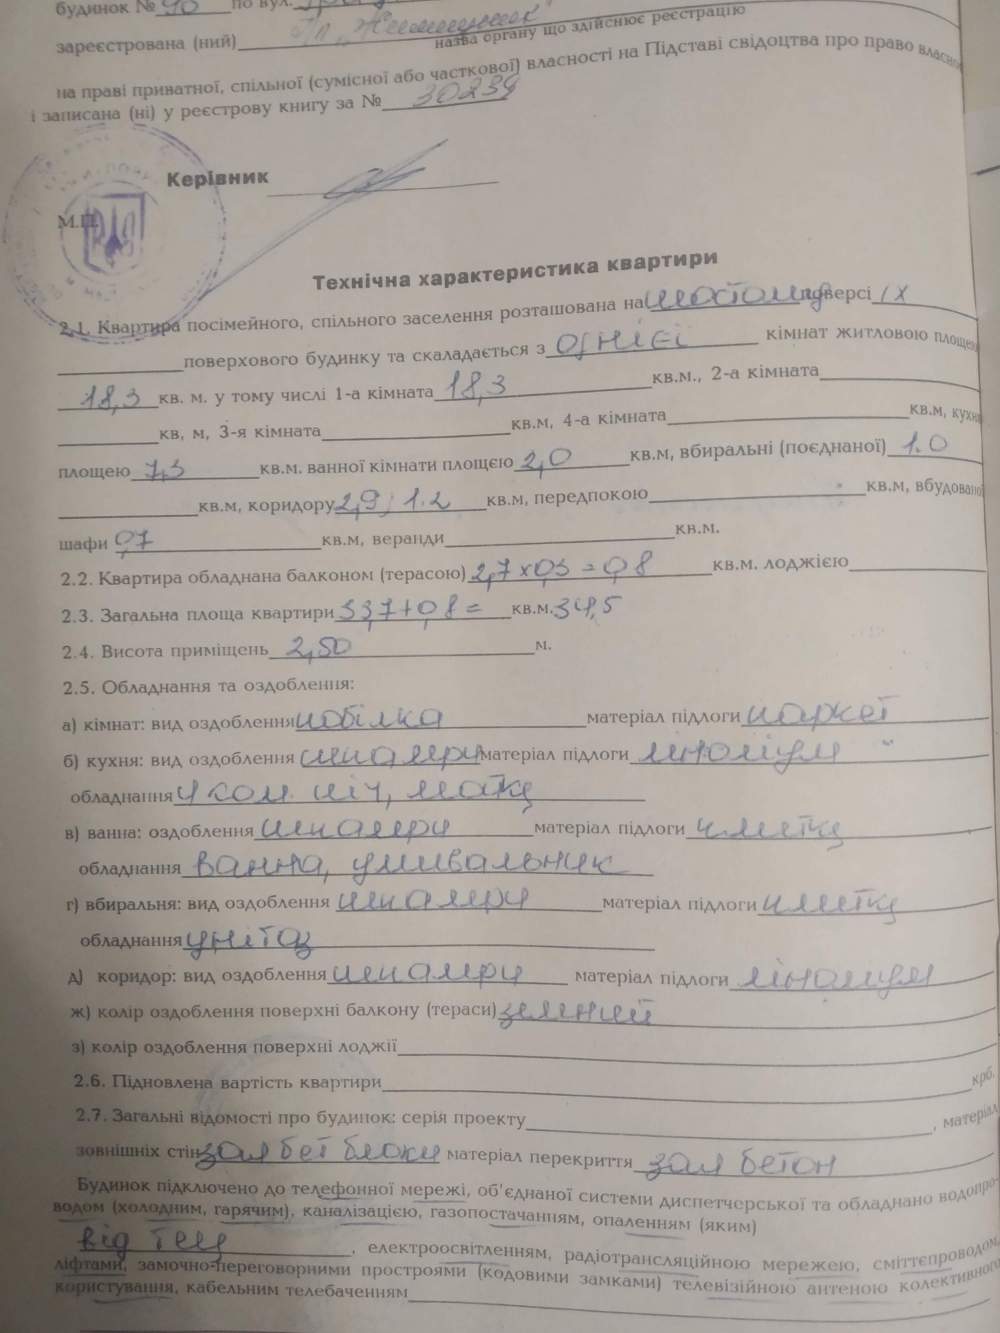 будинок № 90 по вул.
зареєстрована (ний)
назва органу що здійснює реєстрацію
на праві приватної, спільної (сумісної або часткової) власності на Підставі свідоцтва про право власно
і записана (ні) у реєстрову книгу за № 30239
Керівник
М.П.
Технічна характеристика квартири
2.1. Квартира посімейного, спільного заселення розташована на шостому поверсі IX
поверхового будинку та скаладається з однієї кімнат житловою площею
18,3 кв. м. у тому числі 1-а кімната 18,3 кв.м., 2-а кімната
кв, м, 3-я кімната кв.м, 4-а кімната кв.м, кухня
площею 7,3 кв.м. ванної кімнати площєю 2,0 кв.м, вбиральні (поєднаної) 1.0
кв.м, коридору 2,9; 1.2 кв.м, передпокою кв.м, вбудованої
шафи 0,7 кв.м, веранди кв.м.
2.2. Квартира обладнана балконом (терасою) 2,7 х 0,3 = 0,8 кв.м. лоджією
2.3. Загальна площа квартири 33,7+0,8 = кв.м. 34,5
2.4. Висота приміщень 2,50 м.
2.5. Обладнання та оздоблення:
а) кімнат: вид оздоблення побілка матеріал підлоги паркет
б) кухня: вид оздоблення шпалери матеріал підлоги ліноліум
обладнання 4 ком. піч,
в) ванна: оздоблення шпалери матеріал підлоги плитка
обладнання ванна, умивальник
г) вбиральня: вид оздоблення шпалери матеріал підлоги плитка
обладнання унітаз
д) коридор: вид оздоблення шпалери матеріал підлоги ліноліум
ж) колір оздоблення поверхні балкону (тераси) зелений
з) колір оздоблення поверхні лоджії
2.6. Підновлена вартість квартири крб.
2.7. Загальні відомості про будинок: серія проекту , матеріал
зовнішніх стін зал бет блоки матеріал перекриття зал бетон
Будинок підключено до телефонної мережі, об'єднаної системи диспетчерської та обладнано водопро-
водом (холодним, гарячим), каналізацією, газопостачанням, опаленням (яким)
від Тец , електроосвітленням, радіотрансляційною мережею, сміттєпроводом,
ліфтами, замочно-переговорними простроями (кодовими замками) телевізійною антеною колективного
користування, кабельним телебаченням